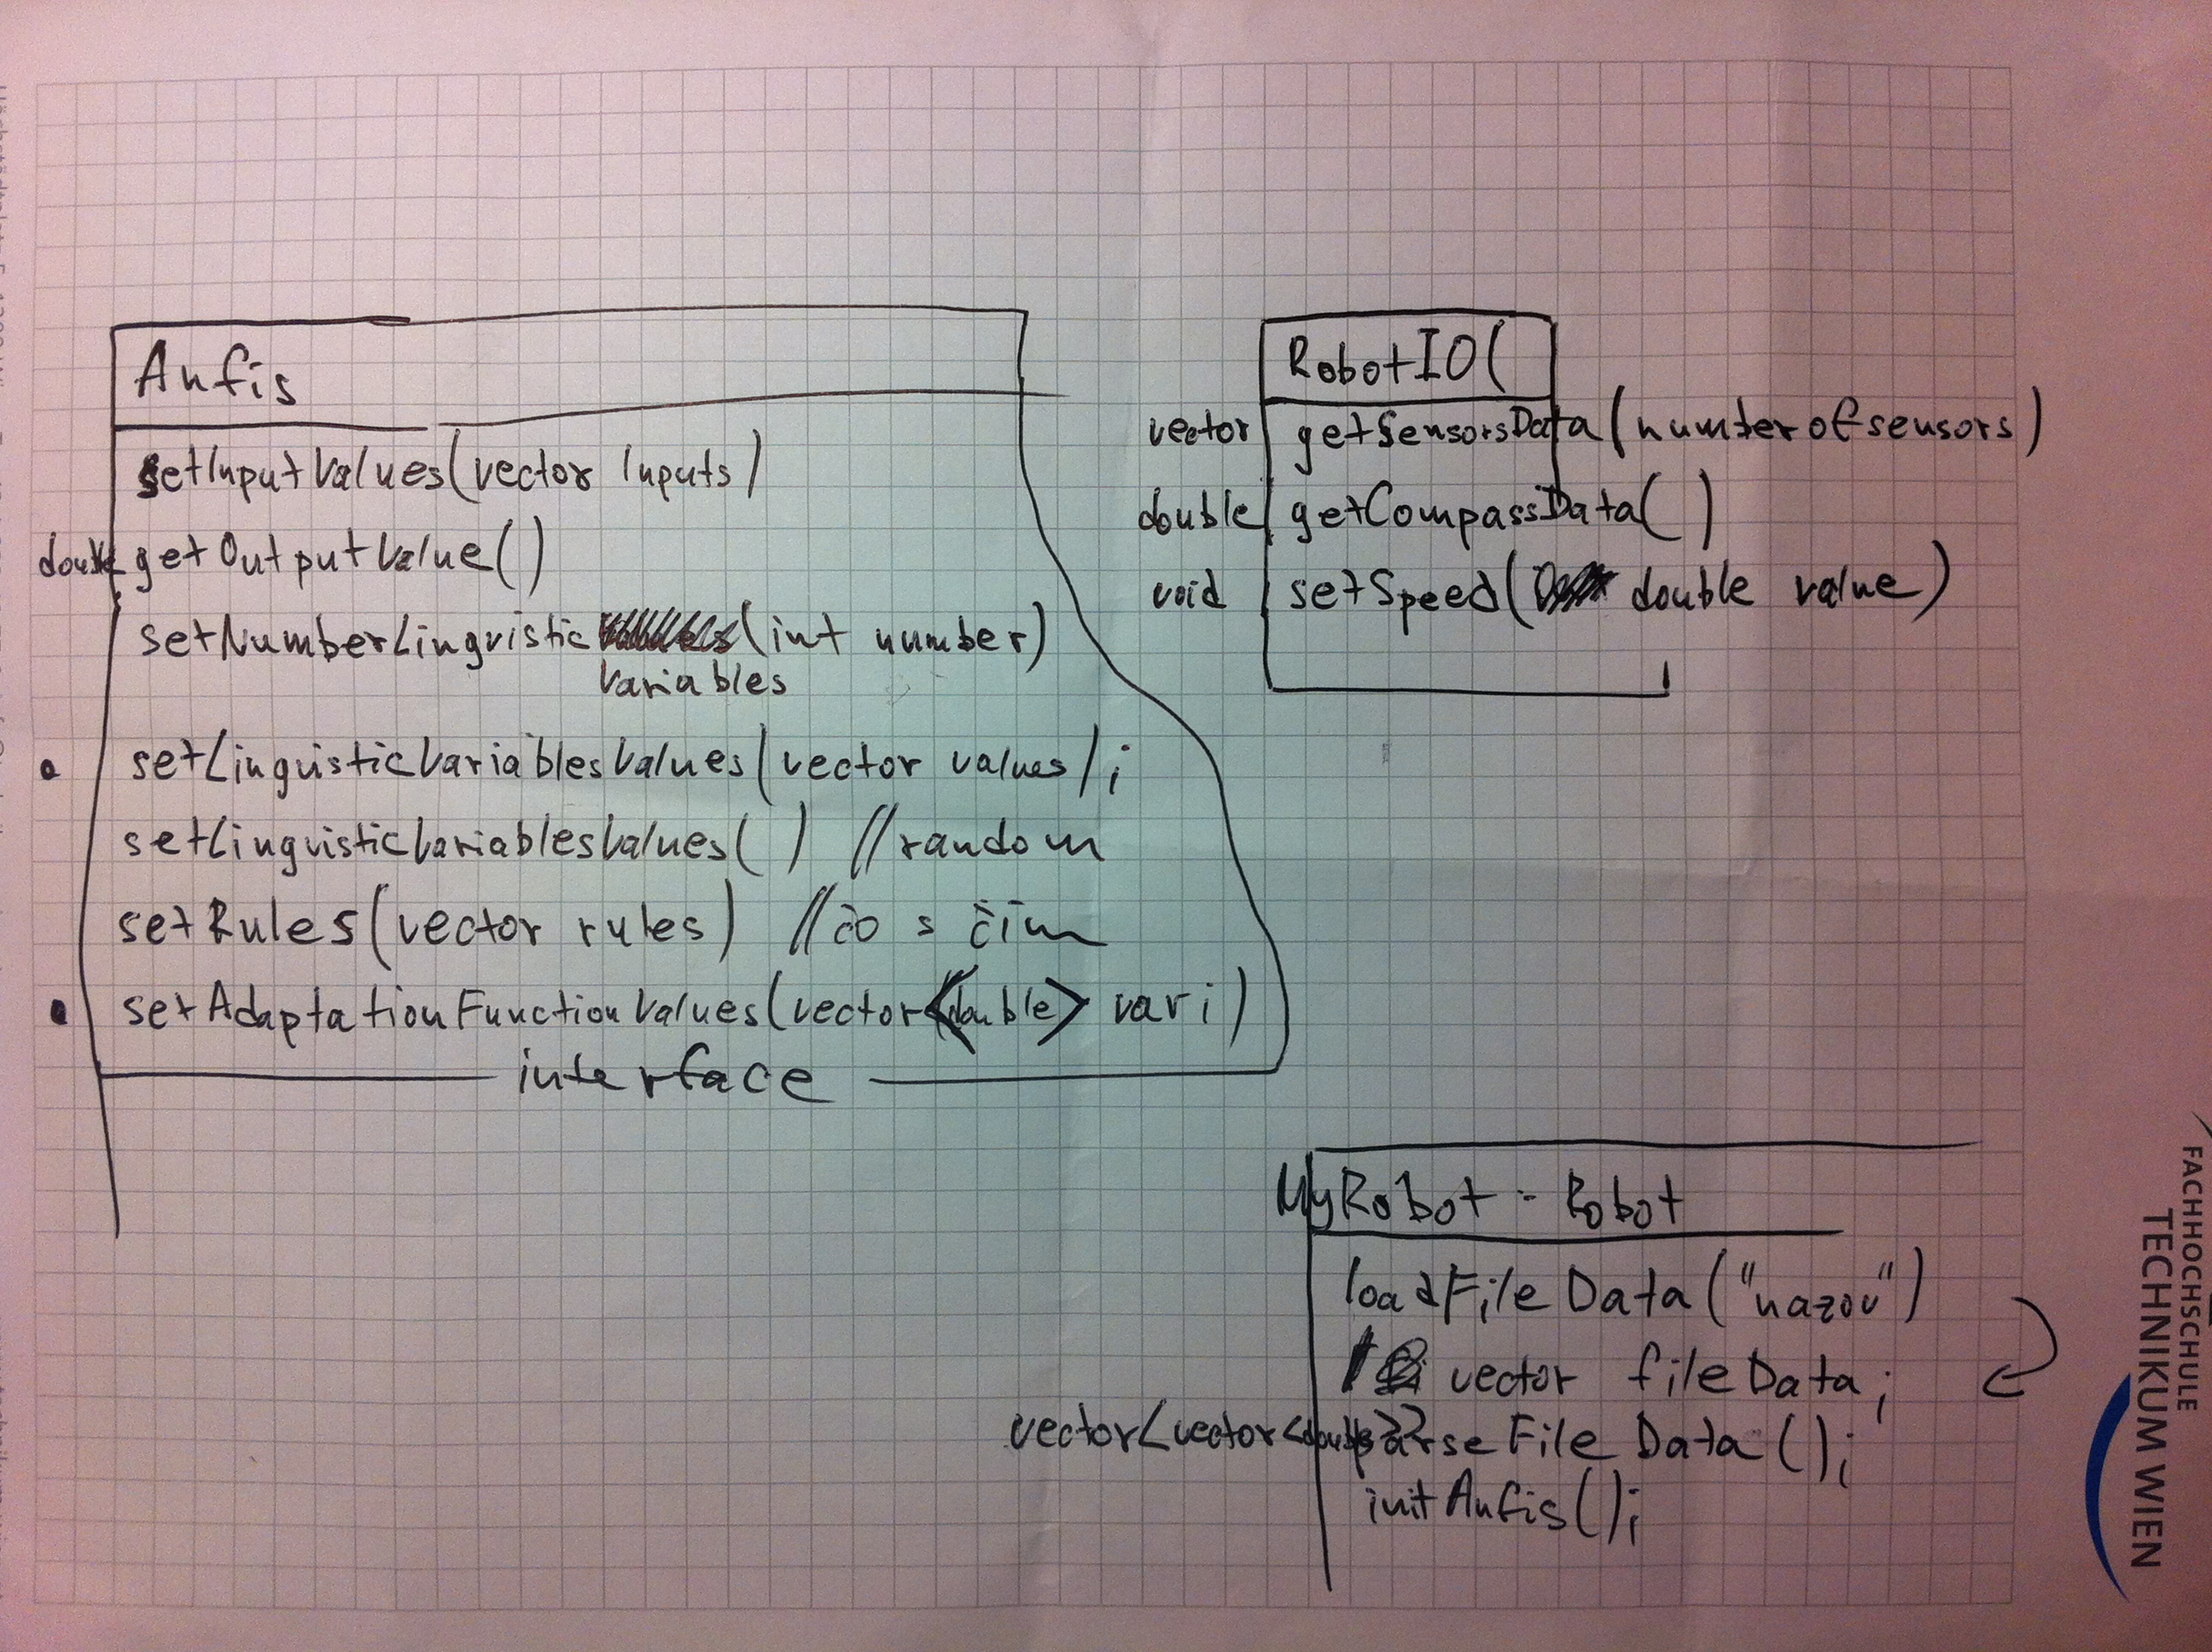 Anfis
setInputValues(vector Inputs)
double getOutputValue()
setNumberLingvistic (int number)
Variables
setLinguisticVariablesValues(vector values);
setLingvisticVariablesValues() //random
setRules(vector rules) //čo s čím
setAdaptationFunctionValues(vector<double> vari)
interface
RobotIO(
vector getSensorsData(numberofsensors)
double getCompassData()
void setSpeed( double value)
MyRobot : Robot
loadFileData("nazov")
vector fileData;
vector<vector<double>> parseFileData();
initAnfis();
FACHHOCHSCHULE
TECHNIKUM WIEN